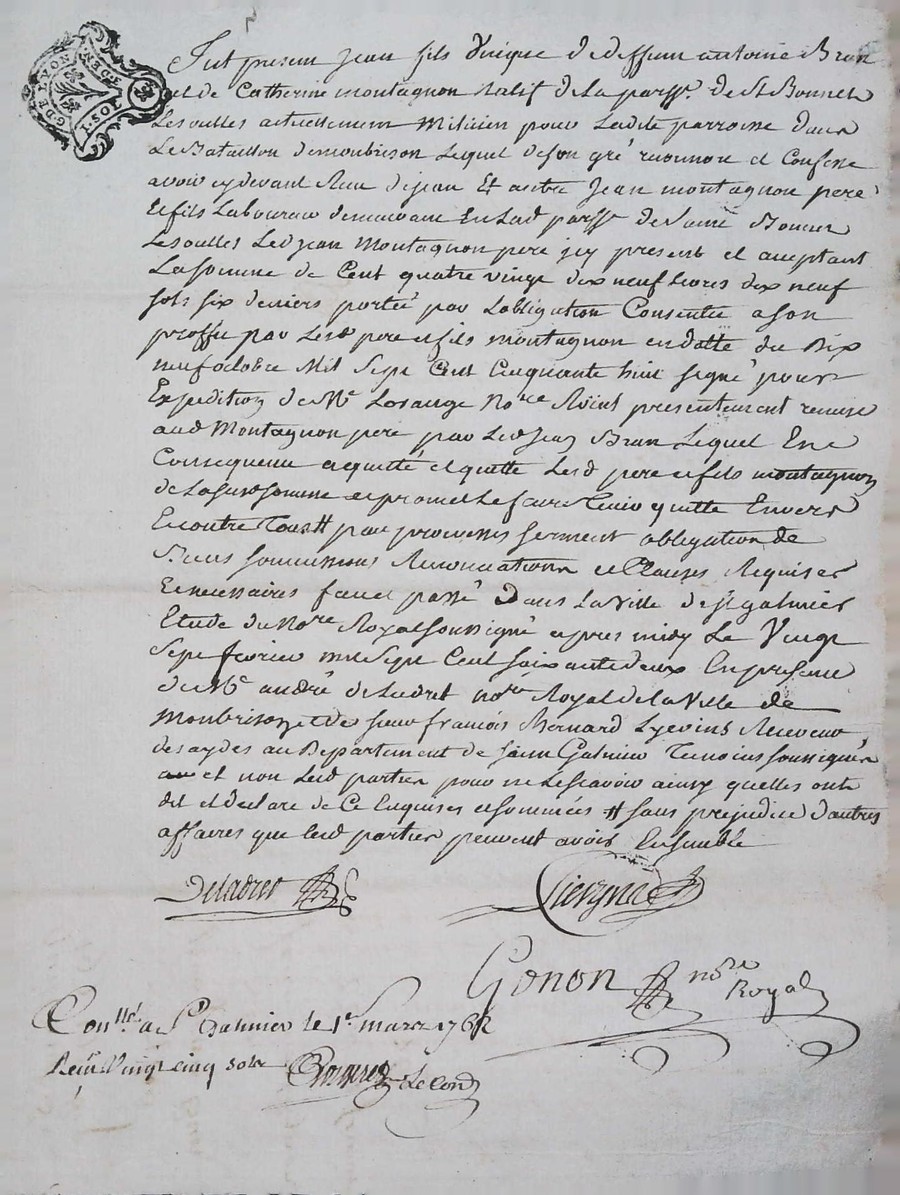 G. DE LYON
1. SOL
Fut present Jean fils unique de deffunt antoine Brun
et de Catherine montagnon natif de la parr.e de St Bonnet
Lesoulles actuellement Milicien pour Ladite parroisse dans
Le Bataillon demonbrison Lequel deson gré reconnou et Confesse
avoir cydevant Receu de jean Et autre Jean montagnon pere
et fils Laboureur demeurant En Lad parr.e de Saint Bonnet
Lesoulles Led jean Montagnon pere icy present et aceptant
La somme de Cent quatre vingt dix neuf Livres dix neuf
sols six deniers portée par Lobligation Consentie a son
proffit par Lesd pere et fils montagnon en datte du Dix
neuf octobre Mil Sept Cent Cinquante huit signé pour
Expedition de Me Losange No.re presentement remise
aud Montagnon pere par Led Jean Brun Lequel En
Consequence a quitté et quitte Lesd pere et fils montagnon
de La susd somme et promet Le faire Tenir quitte Envers
Et contre Tous # par promesses serment obligation de
Biens soumissions Renonciations et Clauses Requises
Et necessaires fait et passé Dans La Ville de St galmier
Etude du No.re Royal soussigné apres midy Le Vingt
Sept fevrier mil Sept Cent soixante deux En presence
de Me andré deladret no.re Royal de la Ville de
Monbrison et de sieur francois Bernard Receveur
des aydes au Departement de saint Galmier Temoins soussignés
et non Lesd parties pour ne Lescavoir ainsy quelles ont
dit et declare de Ce Enquises et sommées # sans prejudice dautres
affaires que lesd parties peuvent avoir Ensemble
Deladret
Gonon no.re
Royal
Con.llé a St Galmier le 1er mars 1762
Reçu Vingt cinq sols